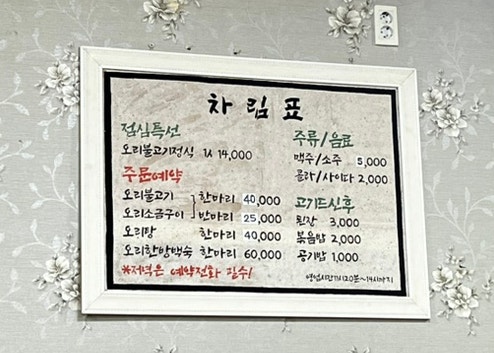 차림표
점심특선
오리불고기정식 1人 14,000
주문예약
오리불고기 한마리 40,000
오리소금구이 반마리 25,000
오리탕 한마리 40,000
오리한방백숙 한마리 60,000
*저녁은 예약전화 필수!
주류/음료
맥주/소주 5,000
콜라/사이다 2,000
고기드신후
된장 3,000
볶음밥 2,000
공기밥 1,000
영업시간11시20분~14시까지